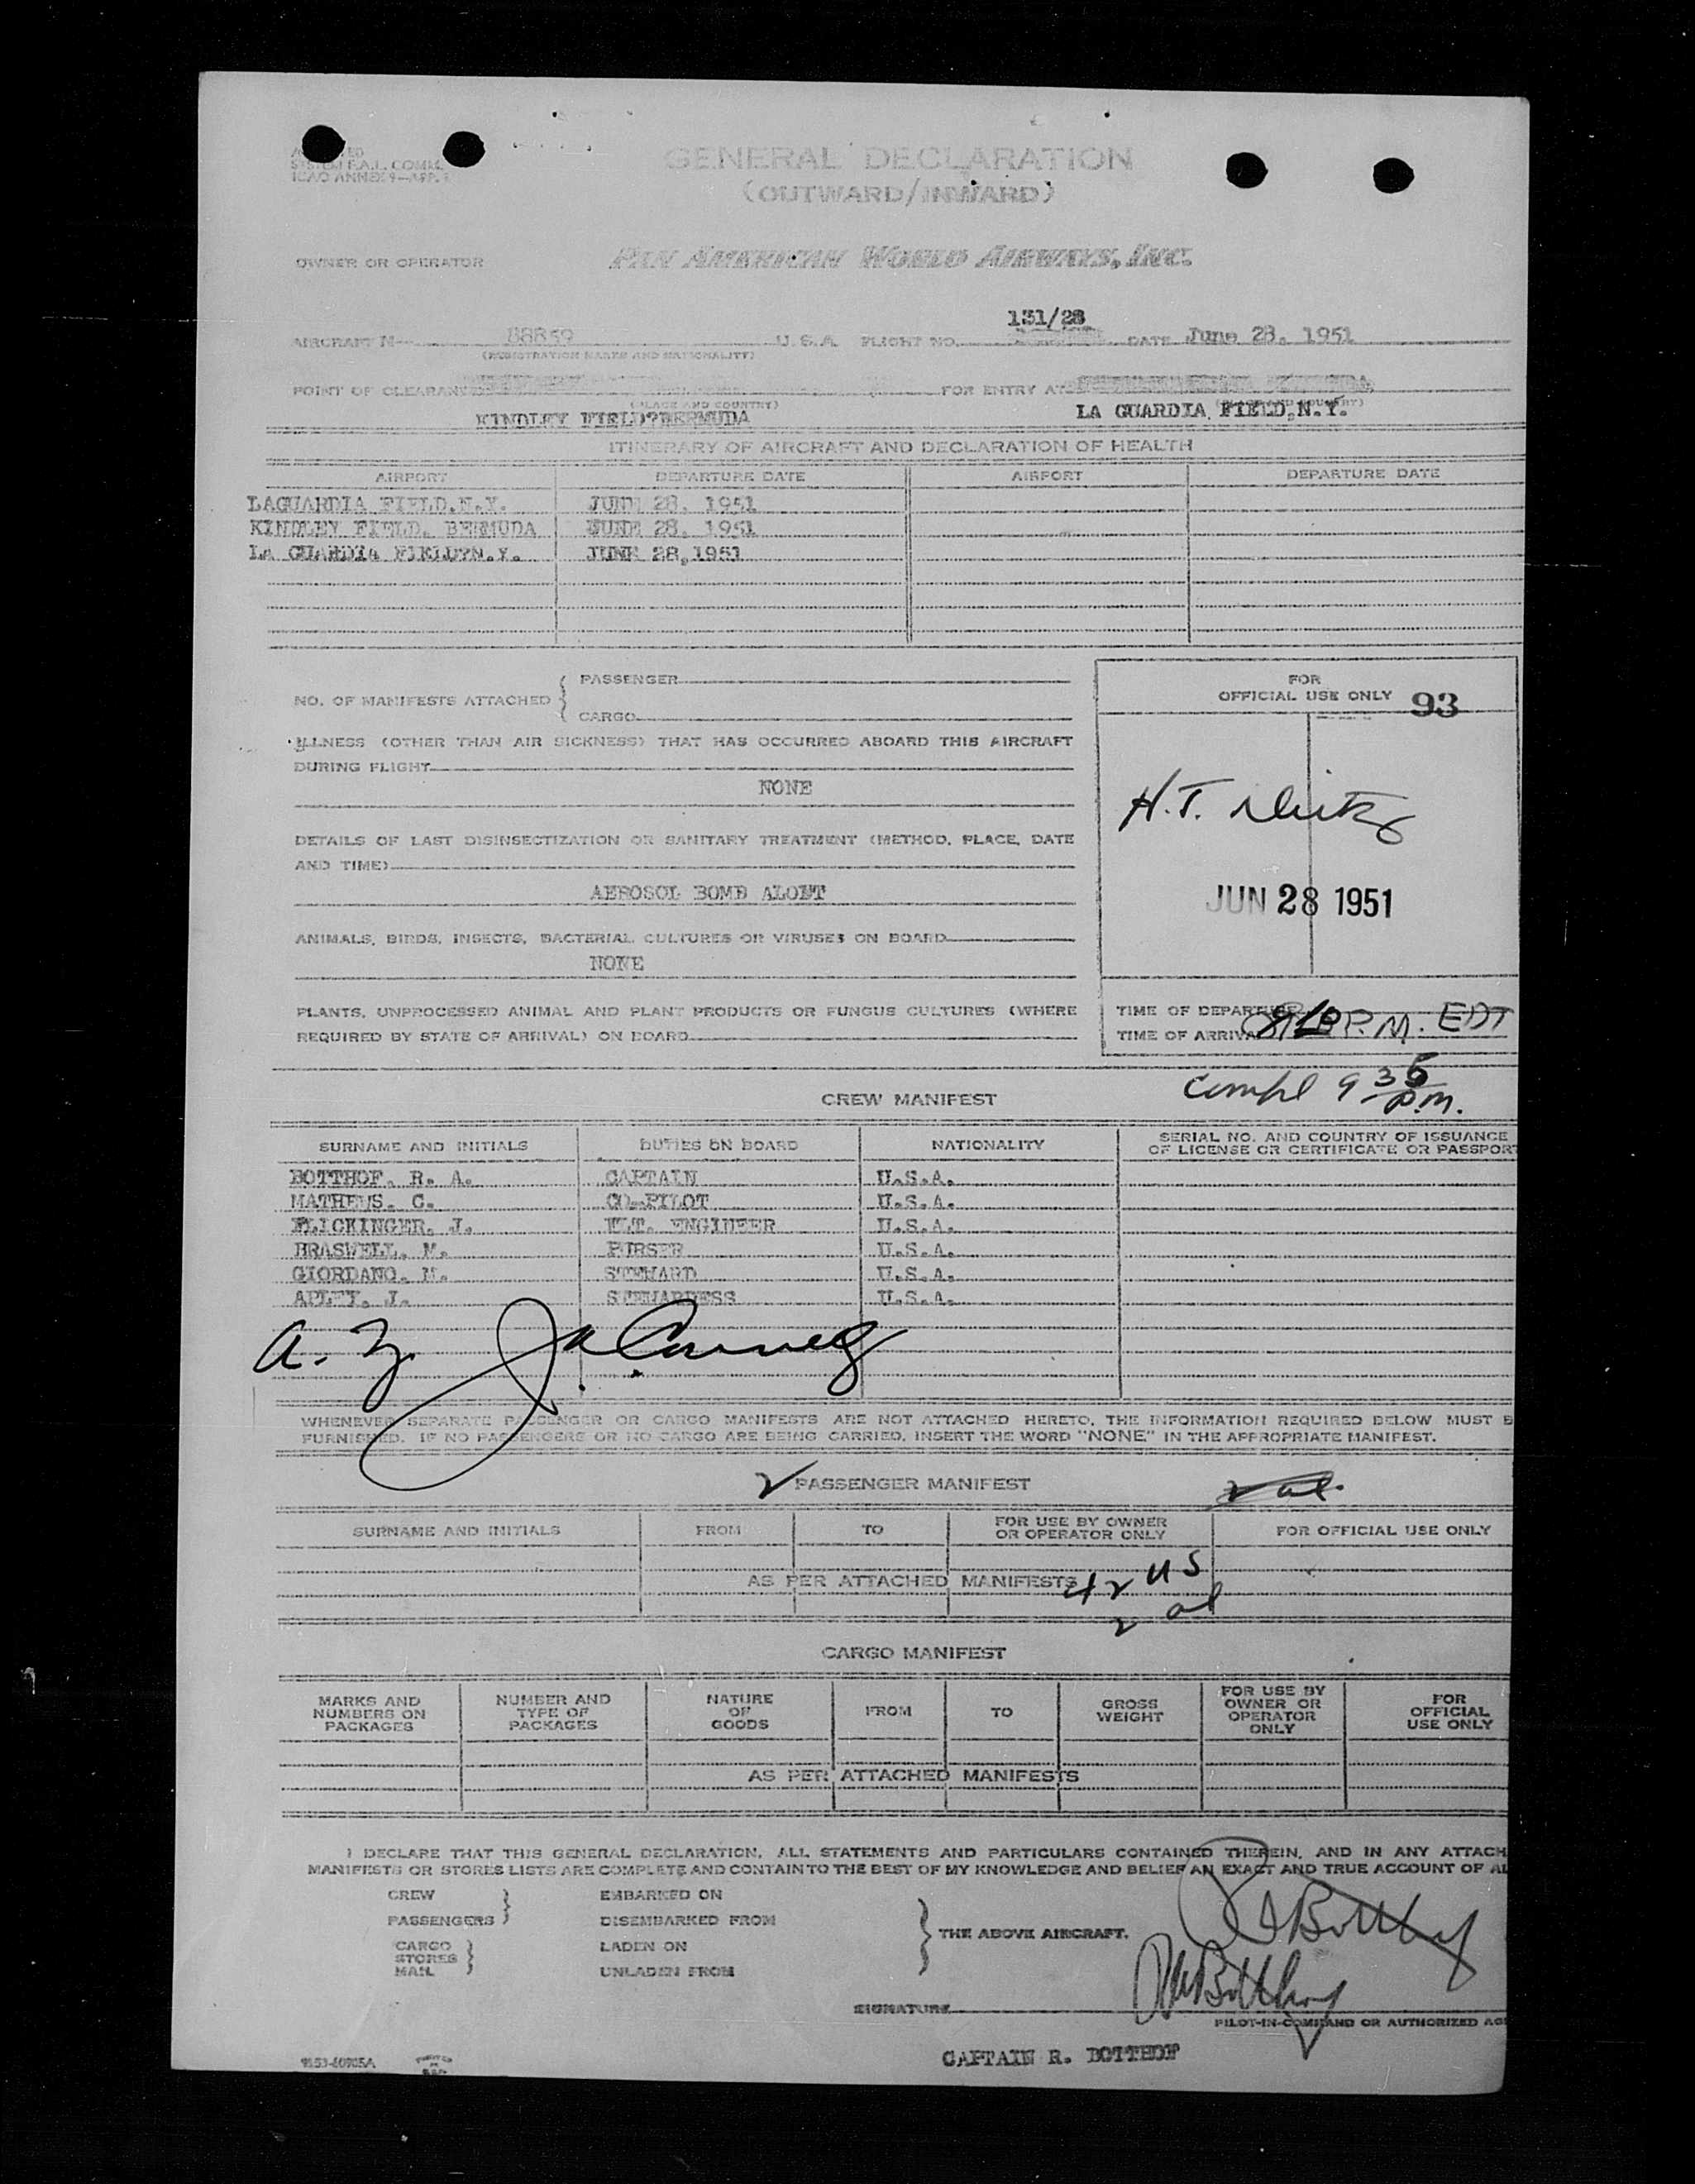 GENERAL DECLARATION
(OUTWARD/INWARD)
ICAO ANNEX 9—APP. 1
OWNER OR OPERATOR PAN AMERICAN WORLD AIRWAYS, INC.
131/28
AIRCRAFT N— 88859 U.S.A. FLIGHT NO. DATE June 28, 1951
(REGISTRATION MARKS AND NATIONALITY)
POINT OF CLEARANCE FOR ENTRY AT
(PLACE AND COUNTRY) (PLACE AND COUNTRY)
KINDLEY FIELD?BERMUDA LA GUARDIA FIELD,N.Y.
ITINERARY OF AIRCRAFT AND DECLARATION OF HEALTH
AIRPORT DEPARTURE DATE AIRPORT DEPARTURE DATE
LAGUARDIA FIELD.N.Y. JUNE 28, 1951
KINDLEY FIELD, BERMUDA JUNE 28, 1951
LA GUARDIA FIELD?N.Y. JUNE 28,1951
NO. OF MANIFESTS ATTACHED { PASSENGER
CARGO
FOR
OFFICIAL USE ONLY 93
ILLNESS (OTHER THAN AIR SICKNESS) THAT HAS OCCURRED ABOARD THIS AIRCRAFT
DURING FLIGHT
NONE
H.T.
DETAILS OF LAST DISINSECTIZATION OR SANITARY TREATMENT (METHOD, PLACE, DATE
AND TIME)
AEROSOL BOMB ALOFT
JUN 28 1951
ANIMALS, BIRDS, INSECTS, BACTERIAL CULTURES OR VIRUSES ON BOARD
NONE
PLANTS, UNPROCESSED ANIMAL AND PLANT PRODUCTS OR FUNGUS CULTURES (WHERE
REQUIRED BY STATE OF ARRIVAL) ON BOARD
TIME OF DEPARTURE
TIME OF ARRIVAL P.M. EDT
compl 9 35 P.M.
CREW MANIFEST
SURNAME AND INITIALS DUTIES ON BOARD NATIONALITY SERIAL NO. AND COUNTRY OF ISSUANCE
OF LICENSE OR CERTIFICATE OR PASSPORT
BOTTHOF, R. A. CAPTAIN U.S.A.
MATHEWS, C. CO-PILOT U.S.A.
FLICKINGER, J. FLT. ENGINEER U.S.A.
BRASWELL, M. PURSER U.S.A.
GIORDANO, M. STEWARD U.S.A.
APLEY, J. STEWARDESS U.S.A.
WHENEVER SEPARATE PASSENGER OR CARGO MANIFESTS ARE NOT ATTACHED HERETO, THE INFORMATION REQUIRED BELOW MUST B
FURNISHED. IF NO PASSENGERS OR NO CARGO ARE BEING CARRIED, INSERT THE WORD "NONE" IN THE APPROPRIATE MANIFEST.
PASSENGER MANIFEST
SURNAME AND INITIALS FROM TO FOR USE BY OWNER
OR OPERATOR ONLY FOR OFFICIAL USE ONLY
AS PER ATTACHED MANIFESTS 42 US
2 al
CARGO MANIFEST
MARKS AND
NUMBERS ON
PACKAGES NUMBER AND
TYPE OF
PACKAGES NATURE
OF
GOODS FROM TO GROSS
WEIGHT FOR USE BY
OWNER OR
OPERATOR
ONLY FOR
OFFICIAL
USE ONLY
AS PER ATTACHED MANIFESTS
I DECLARE THAT THIS GENERAL DECLARATION, ALL STATEMENTS AND PARTICULARS CONTAINED THEREIN, AND IN ANY ATTACH
MANIFESTS OR STORES LISTS ARE COMPLETE AND CONTAIN TO THE BEST OF MY KNOWLEDGE AND BELIEF AN EXACT AND TRUE ACCOUNT OF AL
CREW EMBARKED ON
PASSENGERS DISEMBARKED FROM
THE ABOVE AIRCRAFT.
CARGO LADEN ON
STORES
MAIL UNLADEN FROM
RABotthof
SIGNATURE RABotthof
PILOT-IN-COMMAND OR AUTHORIZED AG
CAPTAIN R. BOTTHOF